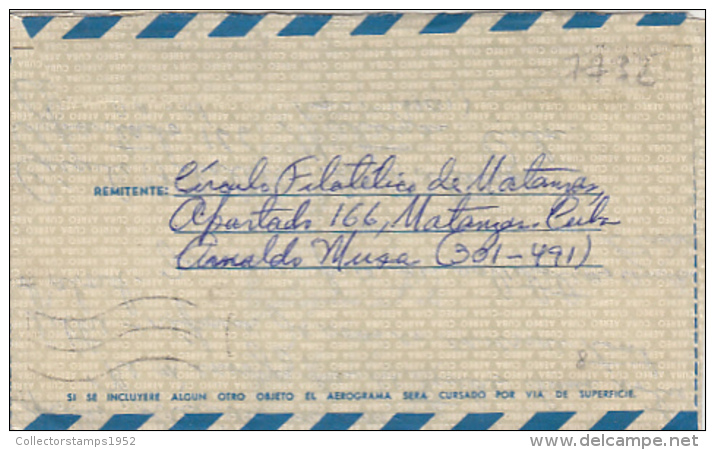 1732
REMITENTE: Círculo Filatélico de Matanzas,
Apartado 166, Matanzas. Cuba
Arnaldo Musa (301-491)
8
SI SE INCLUYERE ALGUN OTRO OBJETO EL AEROGRAMA SERA CURSADO POR VIA DE SUPERFICIE.
Collectorstamps1952
delcampe.net